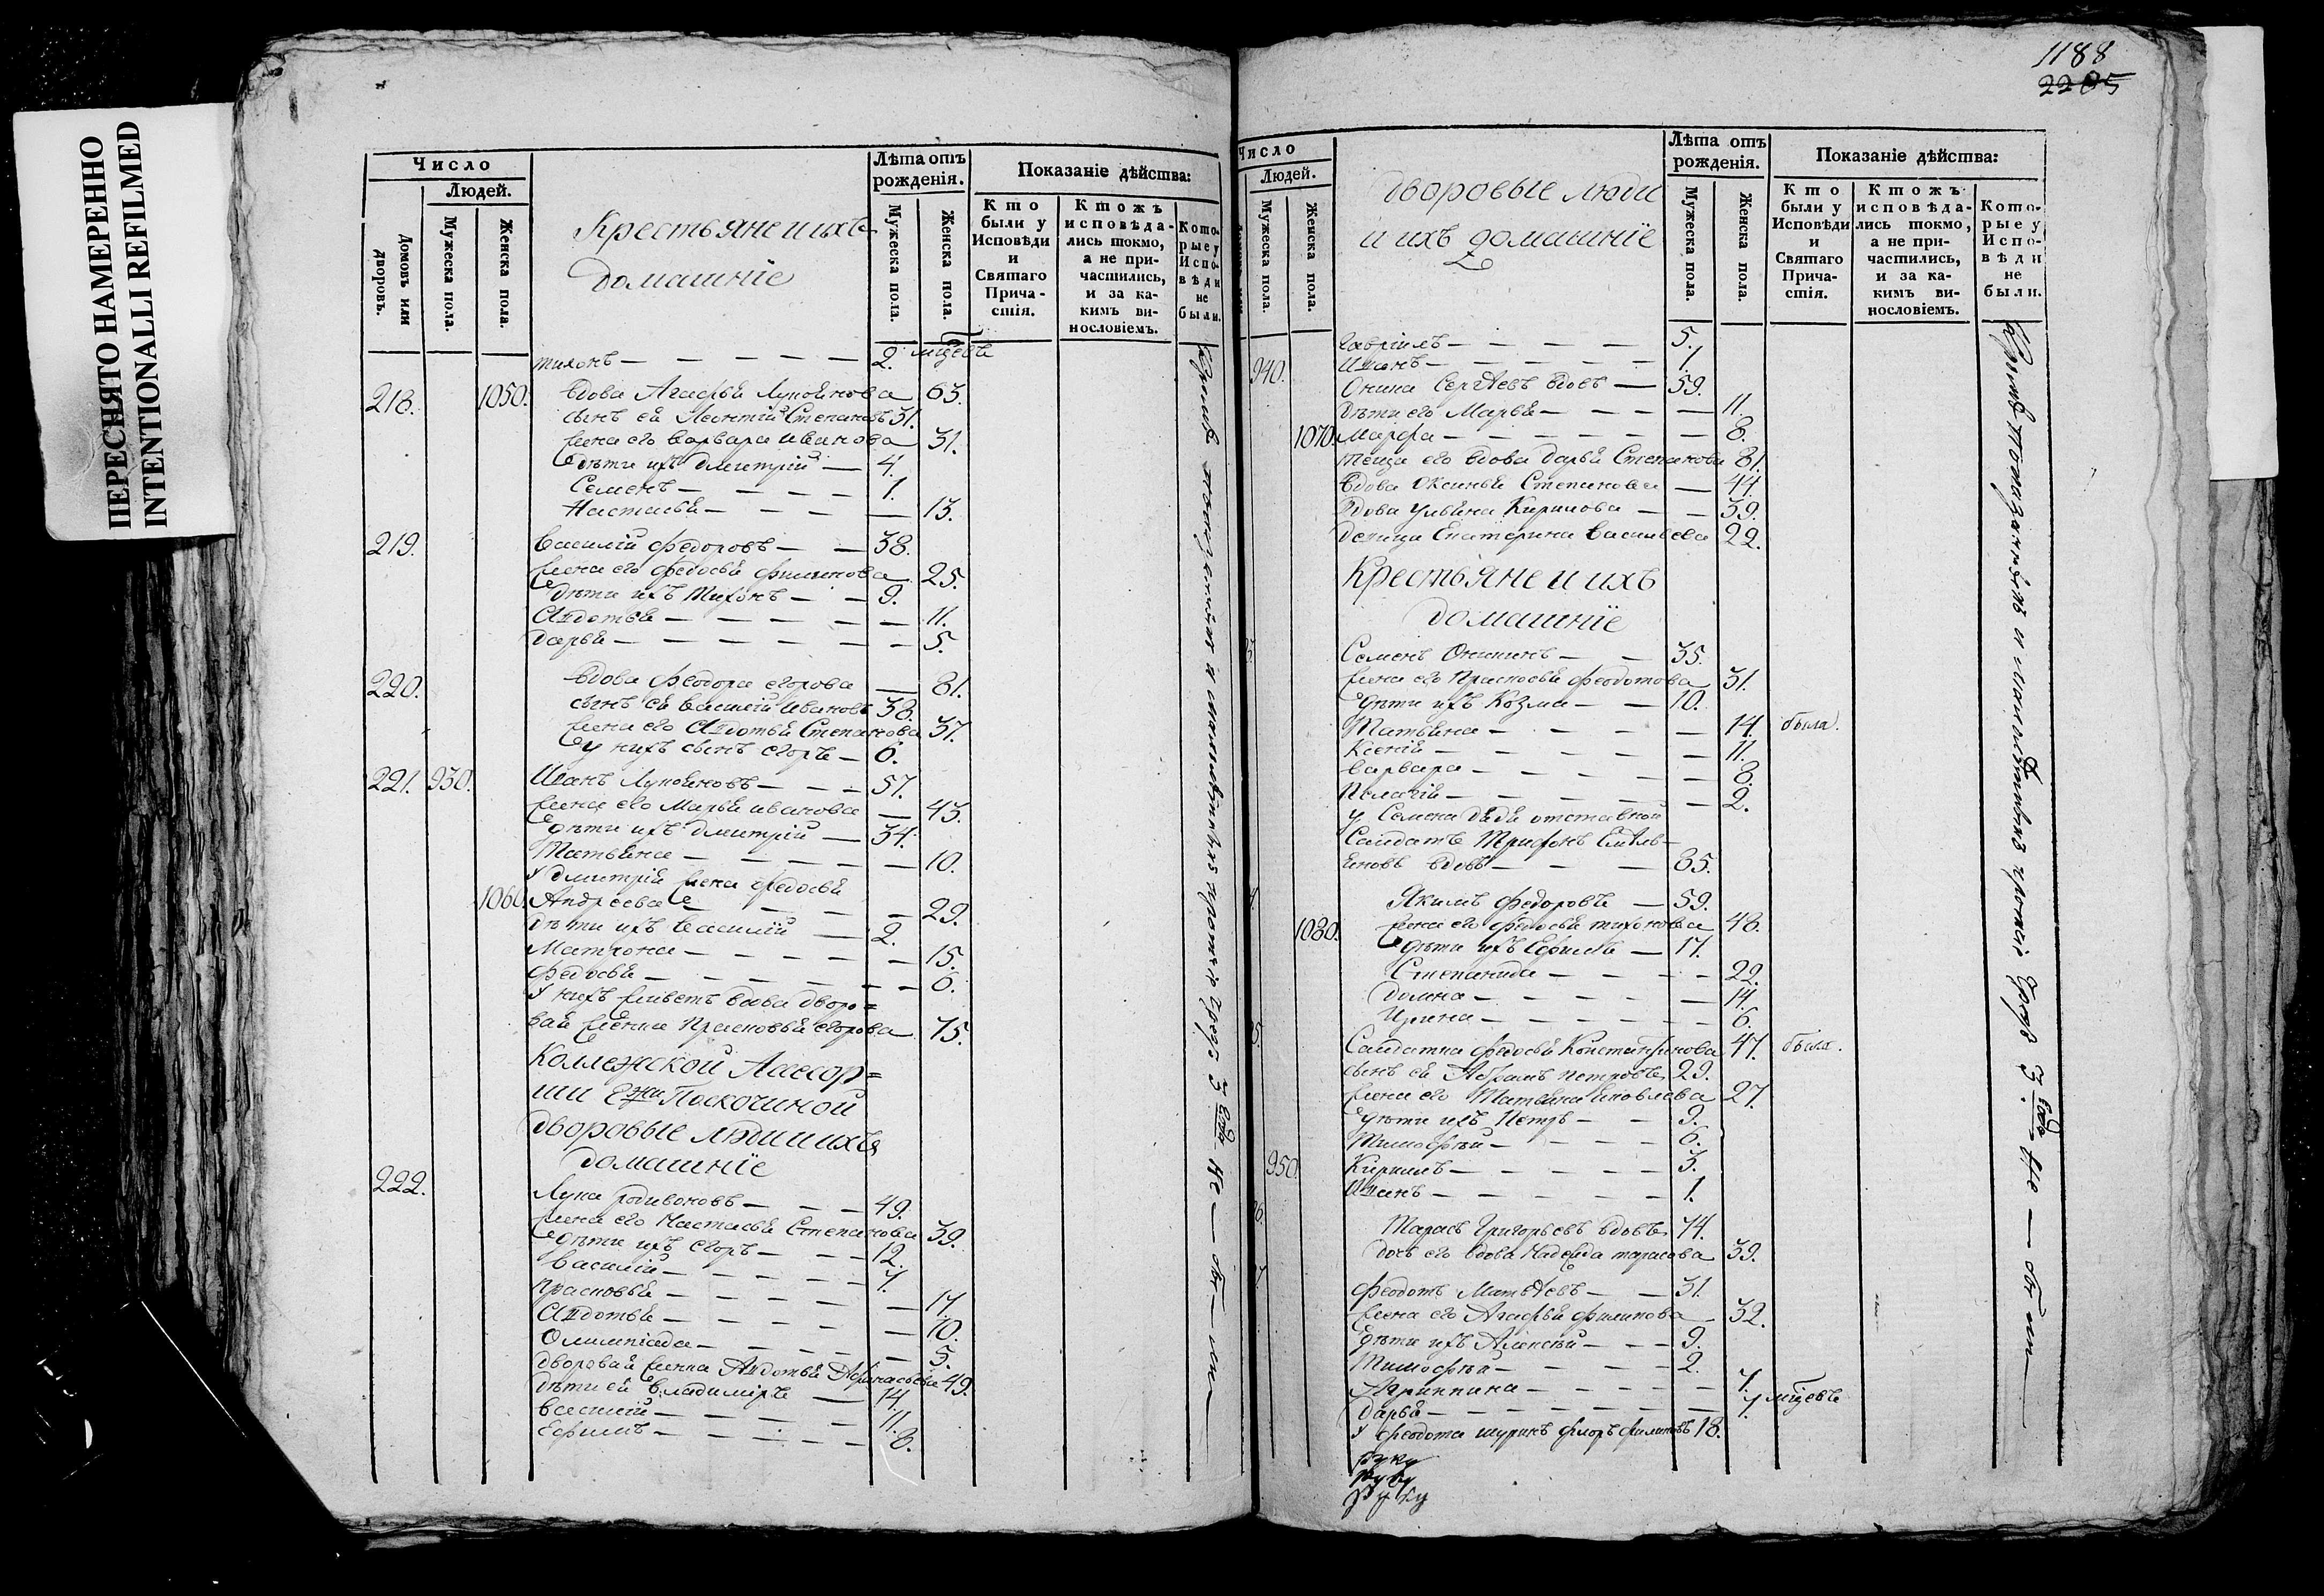 ПЕРЕСНЯТО НАМЕРЕННО
INTENTIONALLI REFILMED
Число
Людей.
Домовъ или дворовъ.
Мужеска пола.
Женска пола.
Крестьяне и ихъ
домашніе
Лѣта отъ рожденія.
Мужеска пола.
Женска пола.
Показаніе дѣйства:
Кто были у Исповѣди и Святаго Причастія.
Ктожъ исповѣдались токмо, а не причастились, и за какимъ винословіемъ.
Которые у Исповѣди не были.
тихонъ — 2. мцевъ
218. 1050. вдова Агафья Лупоянова 63.
сынъ ея Леонтій Степановъ 31.
жена его варвара иванова 31.
дѣти ихъ дмитрій — 4.
Семенъ — 1.
Настасья — 13.
219. василій федоровъ — 38.
жена его федосья филипова 25.
дѣти ихъ Тихонъ — 9.
Авдотья — 11.
дарья — 5.
220. вдова феодора егорова — 81.
сынъ ея василій ивановъ 38.
жена его Авдотья Степанова 37.
у нихъ сынъ егоръ — 6.
221. 930. Иванъ Лупояновъ — 57.
жена его Марья иванова — 43.
дѣти ихъ дмитрій — 34.
Татьяна — 10.
У дмитрія жена федосья
1060. Андреева — 29.
дѣти ихъ василій — 2.
Матрона — 15.
федосья — 6.
У нихъ живетъ вдова дворо=
вая женка Прасковья егорова 75.
Колежской Асесор=
ши Поскочиной
дворовые люди и ихъ
домашніе
222. Лука родивоновъ — 49.
жена его Настасья Степанова 39.
дѣти ихъ егоръ — 12.
василій — 7.
прасковья — 17.
Авдотья — 10.
Олимпіада — 5.
дворовая женка Авдотья Афанасьева 49.
дѣти ея владиміръ — 14.
василій — 11.
Ефимъ — 8.
1188
2205
Число
Людей.
Мужеска пола.
Женска пола.
дворовые люди
и ихъ домашніе
Лѣта отъ рожденія.
Мужеска пола.
Женска пола.
Показаніе дѣйства:
Кто были у Исповѣди и Святаго Причастія.
Ктожъ исповѣдались токмо, а не причастились, и за какимъ винословіемъ.
Которые у Исповѣди не были.
гавріилъ — 5.
940. Иванъ — 1.
Оника Сергѣевъ вдовъ — 59.
дѣти его Марья — 11.
1070. Марфа — 8.
теща его вдова дарья Степанова 81.
вдова Оксинья Степанова — 44.
вдова ульяна Кирилова — 39.
девица Екатерина васильева 22.
Крестьяне и ихъ
домашніе
Семенъ Оникинъ — 35.
жена его Прасковья феодотова 31.
дѣти ихъ Козма — 10.
Татьяна — 14. была.
Ксенія — 11.
варвара — 8.
Пелагія — 2.
у Семена дядя отставной
Салдатъ Трифонъ Емель=
яновъ вдовъ — 85.
Якимъ федоровъ — 59.
1080. жена его федосья тихонова 48.
дѣти ихъ Ефимъ — 17.
Степанида — 22.
домна — 14.
Ирина — 6.
Салдатка федосья Константинова 47. была.
сынъ ея Абрамъ петровъ 29.
жена его Татьяна яковлева 27.
дѣти ихъ Петръ — 9.
Тимофѣй — 6.
950. Кирилъ — 3.
Иванъ — 1.
Тарасъ Григорьевъ вдовъ 74.
дочь его вдова Надежда тарасова 39.
феодотъ Матвѣевъ — 31.
жена его Агафья филипова — 32.
дѣти ихъ Алексѣй — 9.
Тимофѣй — 2.
Агрипина — 7.
дарья — 1 мцевъ
У феодота шуринъ флоръ филиповъ 18.
руку